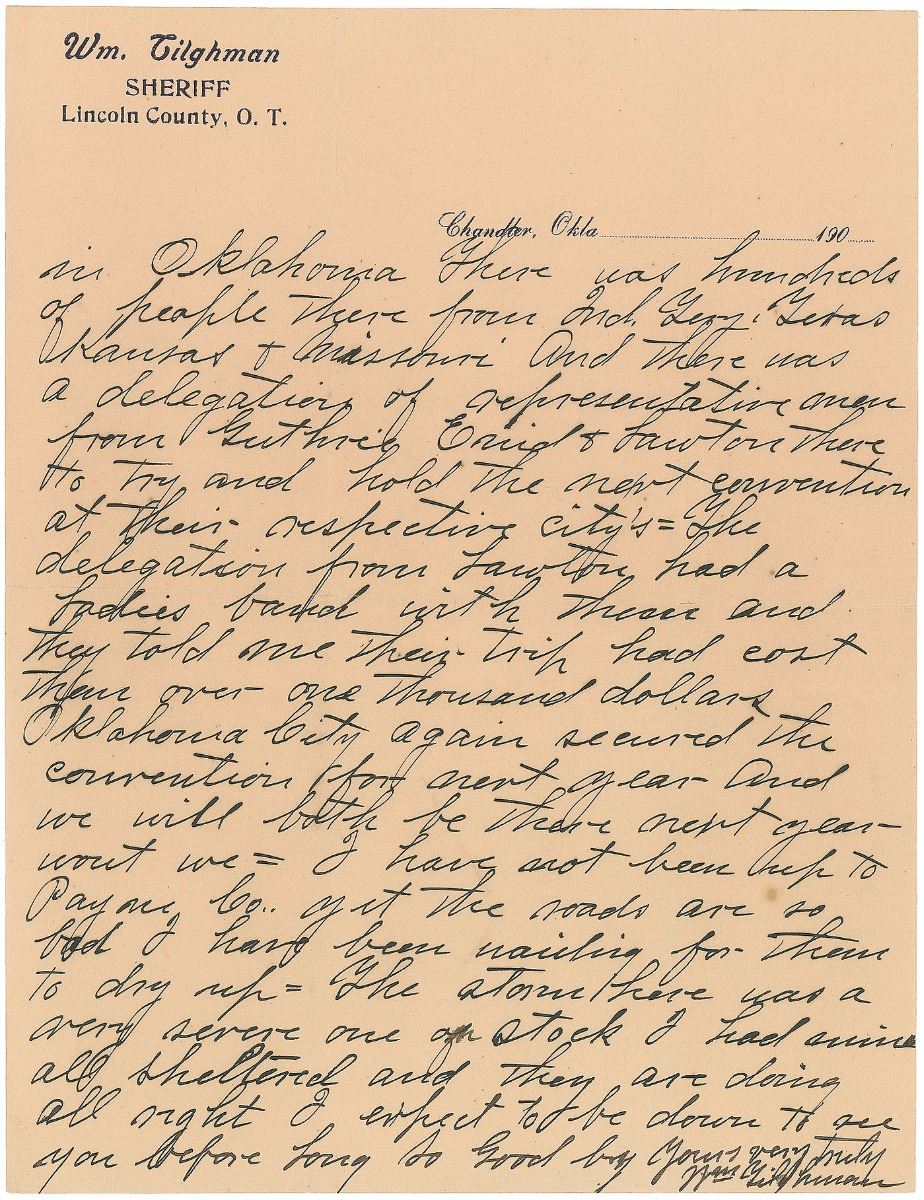 Wm. Tilghman
SHERIFF
Lincoln County, O. T.
Chandler, Okla 190
in Oklahoma There was hundreds
of people there from Ind. Tery. Texas
Kansas & Missouri And there was
a delegation of representative men
from Guthrie Enid & Lawton there
to try and hold the next convention
at their respective city's = The
delegation from Lawton had a
Ladies band with them and
they told me their trip had cost
them over one thousand dollars
Oklahoma City again secured the
convention for next year And
we will both be there next year
wont we = I have not been up to
Payne Co.. yet the roads are so
bad I have been waiting for them
to dry up = The storm here was a
very severe one on stock I had mine
all sheltered and they are doing
all right I expect to be down to see
you before long So Good by Yours very truly
Wm Tilghman